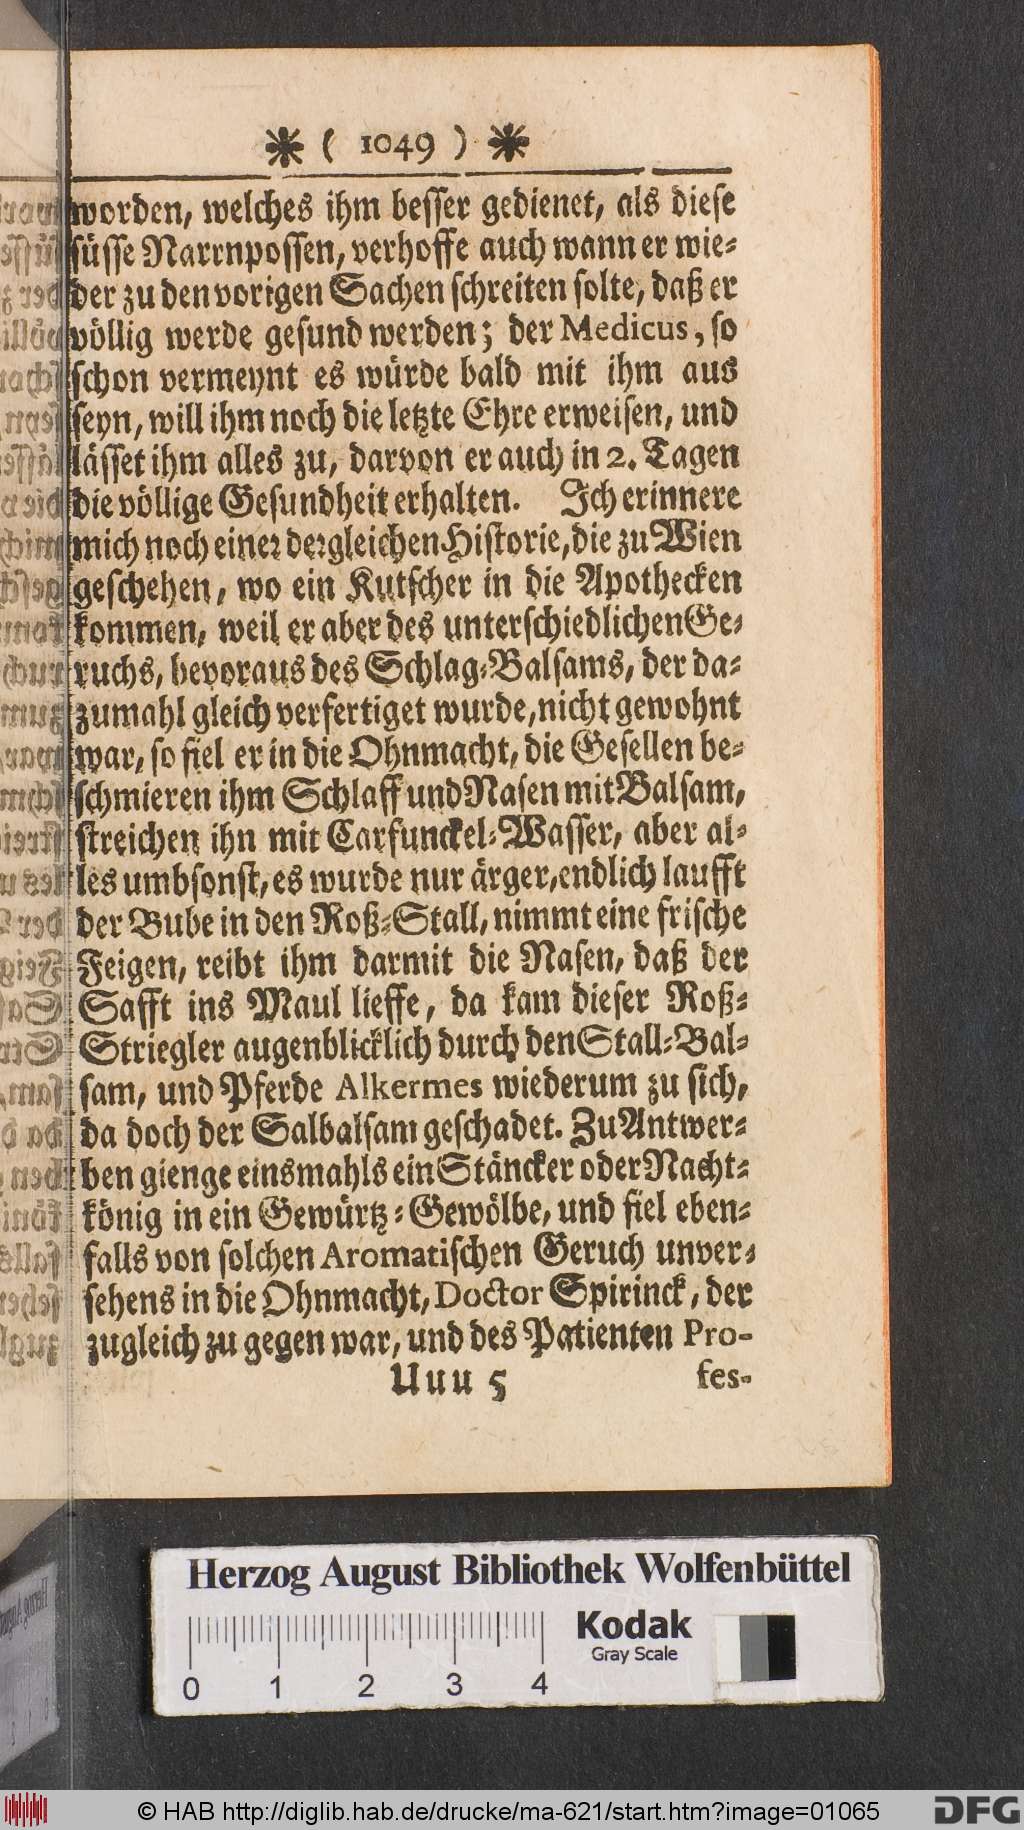 * ( 1049 ) *
worden, welches ihm besser gedienet, als diese
süsse Narrnpossen, verhoffe auch wann er wie-
der zu den vorigen Sachen schreiten solte, daß er
völlig werde gesund werden; der Medicus, so
schon vermeynt es würde bald mit ihm aus
seyn, will ihm noch die letzte Ehre erweisen, und
lässet ihm alles zu, darvon er auch in 2. Tagen
die völlige Gesundheit erhalten. Ich erinnere
mich noch einer dergleichen Historie, die zu Wien
geschehen, wo ein Kutscher in die Apothecken
kommen, weil er aber des unterschiedlichen Ge-
ruchs, bevoraus des Schlag-Balsams, der da-
zumahl gleich verfertiget wurde, nicht gewohnt
war, so fiel er in die Ohnmacht, die Gesellen be-
schmieren ihm Schlaff und Nasen mit Balsam,
streichen ihn mit Carfunckel-Wasser, aber al-
les umbsonst, es wurde nur ärger, endlich laufft
der Bube in den Roß-Stall, nimmt eine frische
Feigen, reibt ihm darmit die Nasen, daß der
Safft ins Maul lieffe, da kam dieser Roß-
Striegler augenblicklich durch den Stall-Bal-
sam, und Pferde Alkermes wiederum zu sich,
da doch der Salbalsam geschadet. Zu Antwer-
ben gienge einsmahls ein Stäncker oder Nacht-
könig in ein Gewürtz-Gewölbe, und fiel eben-
falls von solchen Aromatischen Geruch unver-
sehens in die Ohnmacht, Doctor Spirinck, der
zugleich zu gegen war, und des Patienten Pro-
Uuu 5 fes-
Herzog August Bibliothek Wolfenbüttel
Kodak
Gray Scale
0 1 2 3 4
© HAB http://diglib.hab.de/drucke/ma-621/start.htm?image=01065
DFG